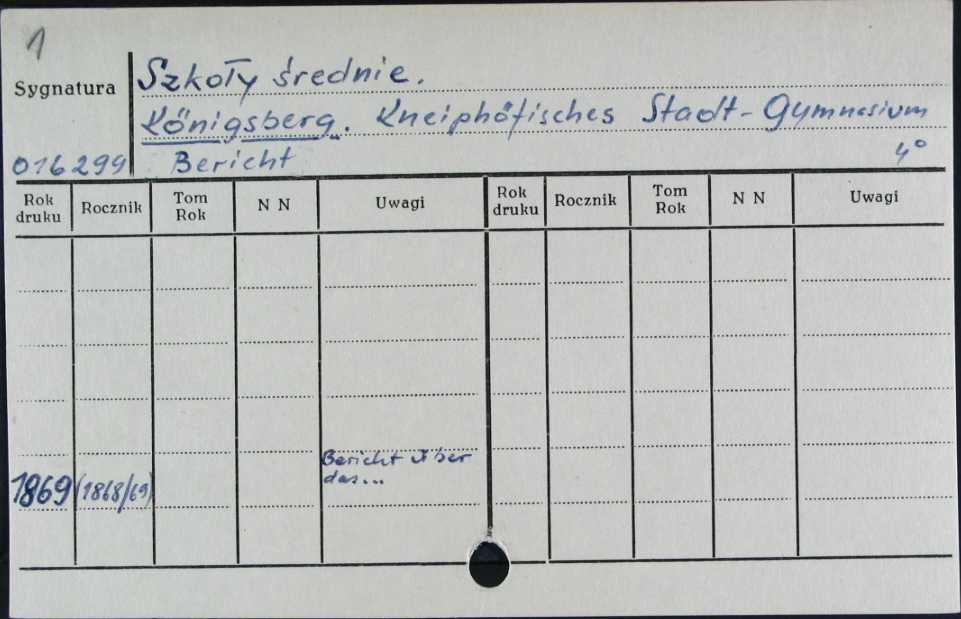 1
Sygnatura
Szkoły średnie.
Königsberg. Kneiphöfisches Stadt-Gymnasium
016299 Bericht 4°
Rok druku Rocznik Tom Rok N N Uwagi Rok druku Rocznik Tom Rok N N Uwagi
1869 (1868/69) Bericht über
das...